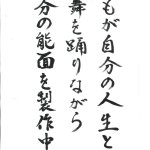 もが自分の人生と
舞を踊りながら
分の能面を製作中